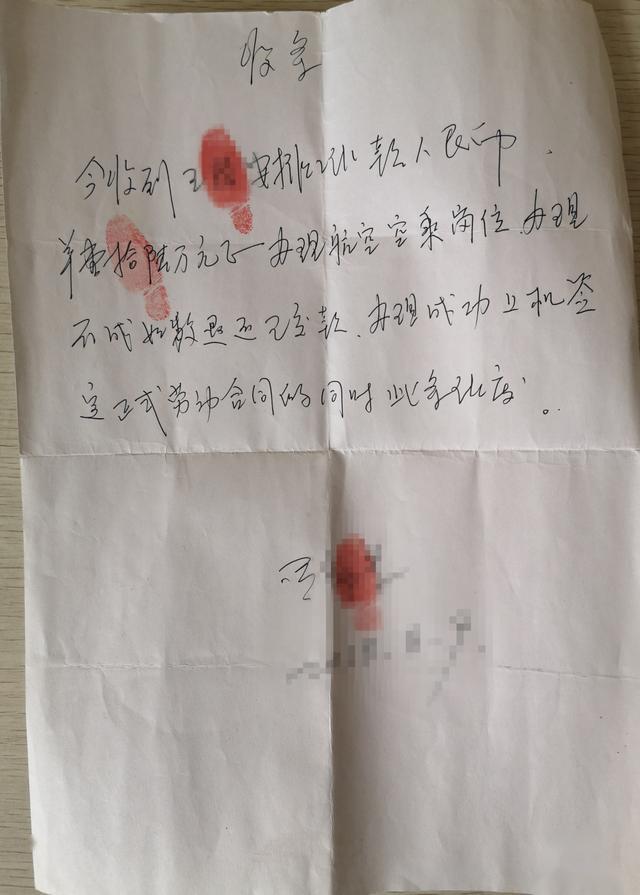 收条
今收到王安排工作款人民币.
壹拾陆万元正办理航空空乘岗位.办理
不成如数退还已交款.办理成功上机签
定正式劳动合同的同时此条作废。